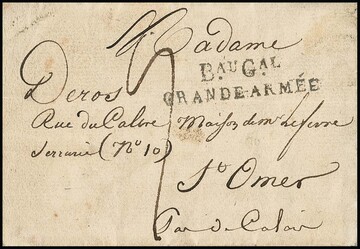 A Madame
Bᴬᵁ Gᴬᴸ
GRANDE-ARMÉE
Derois
Rue du Calvre Maison de mr Lefevre
Serrurie (No 10)
St Omer
Pas de Calais